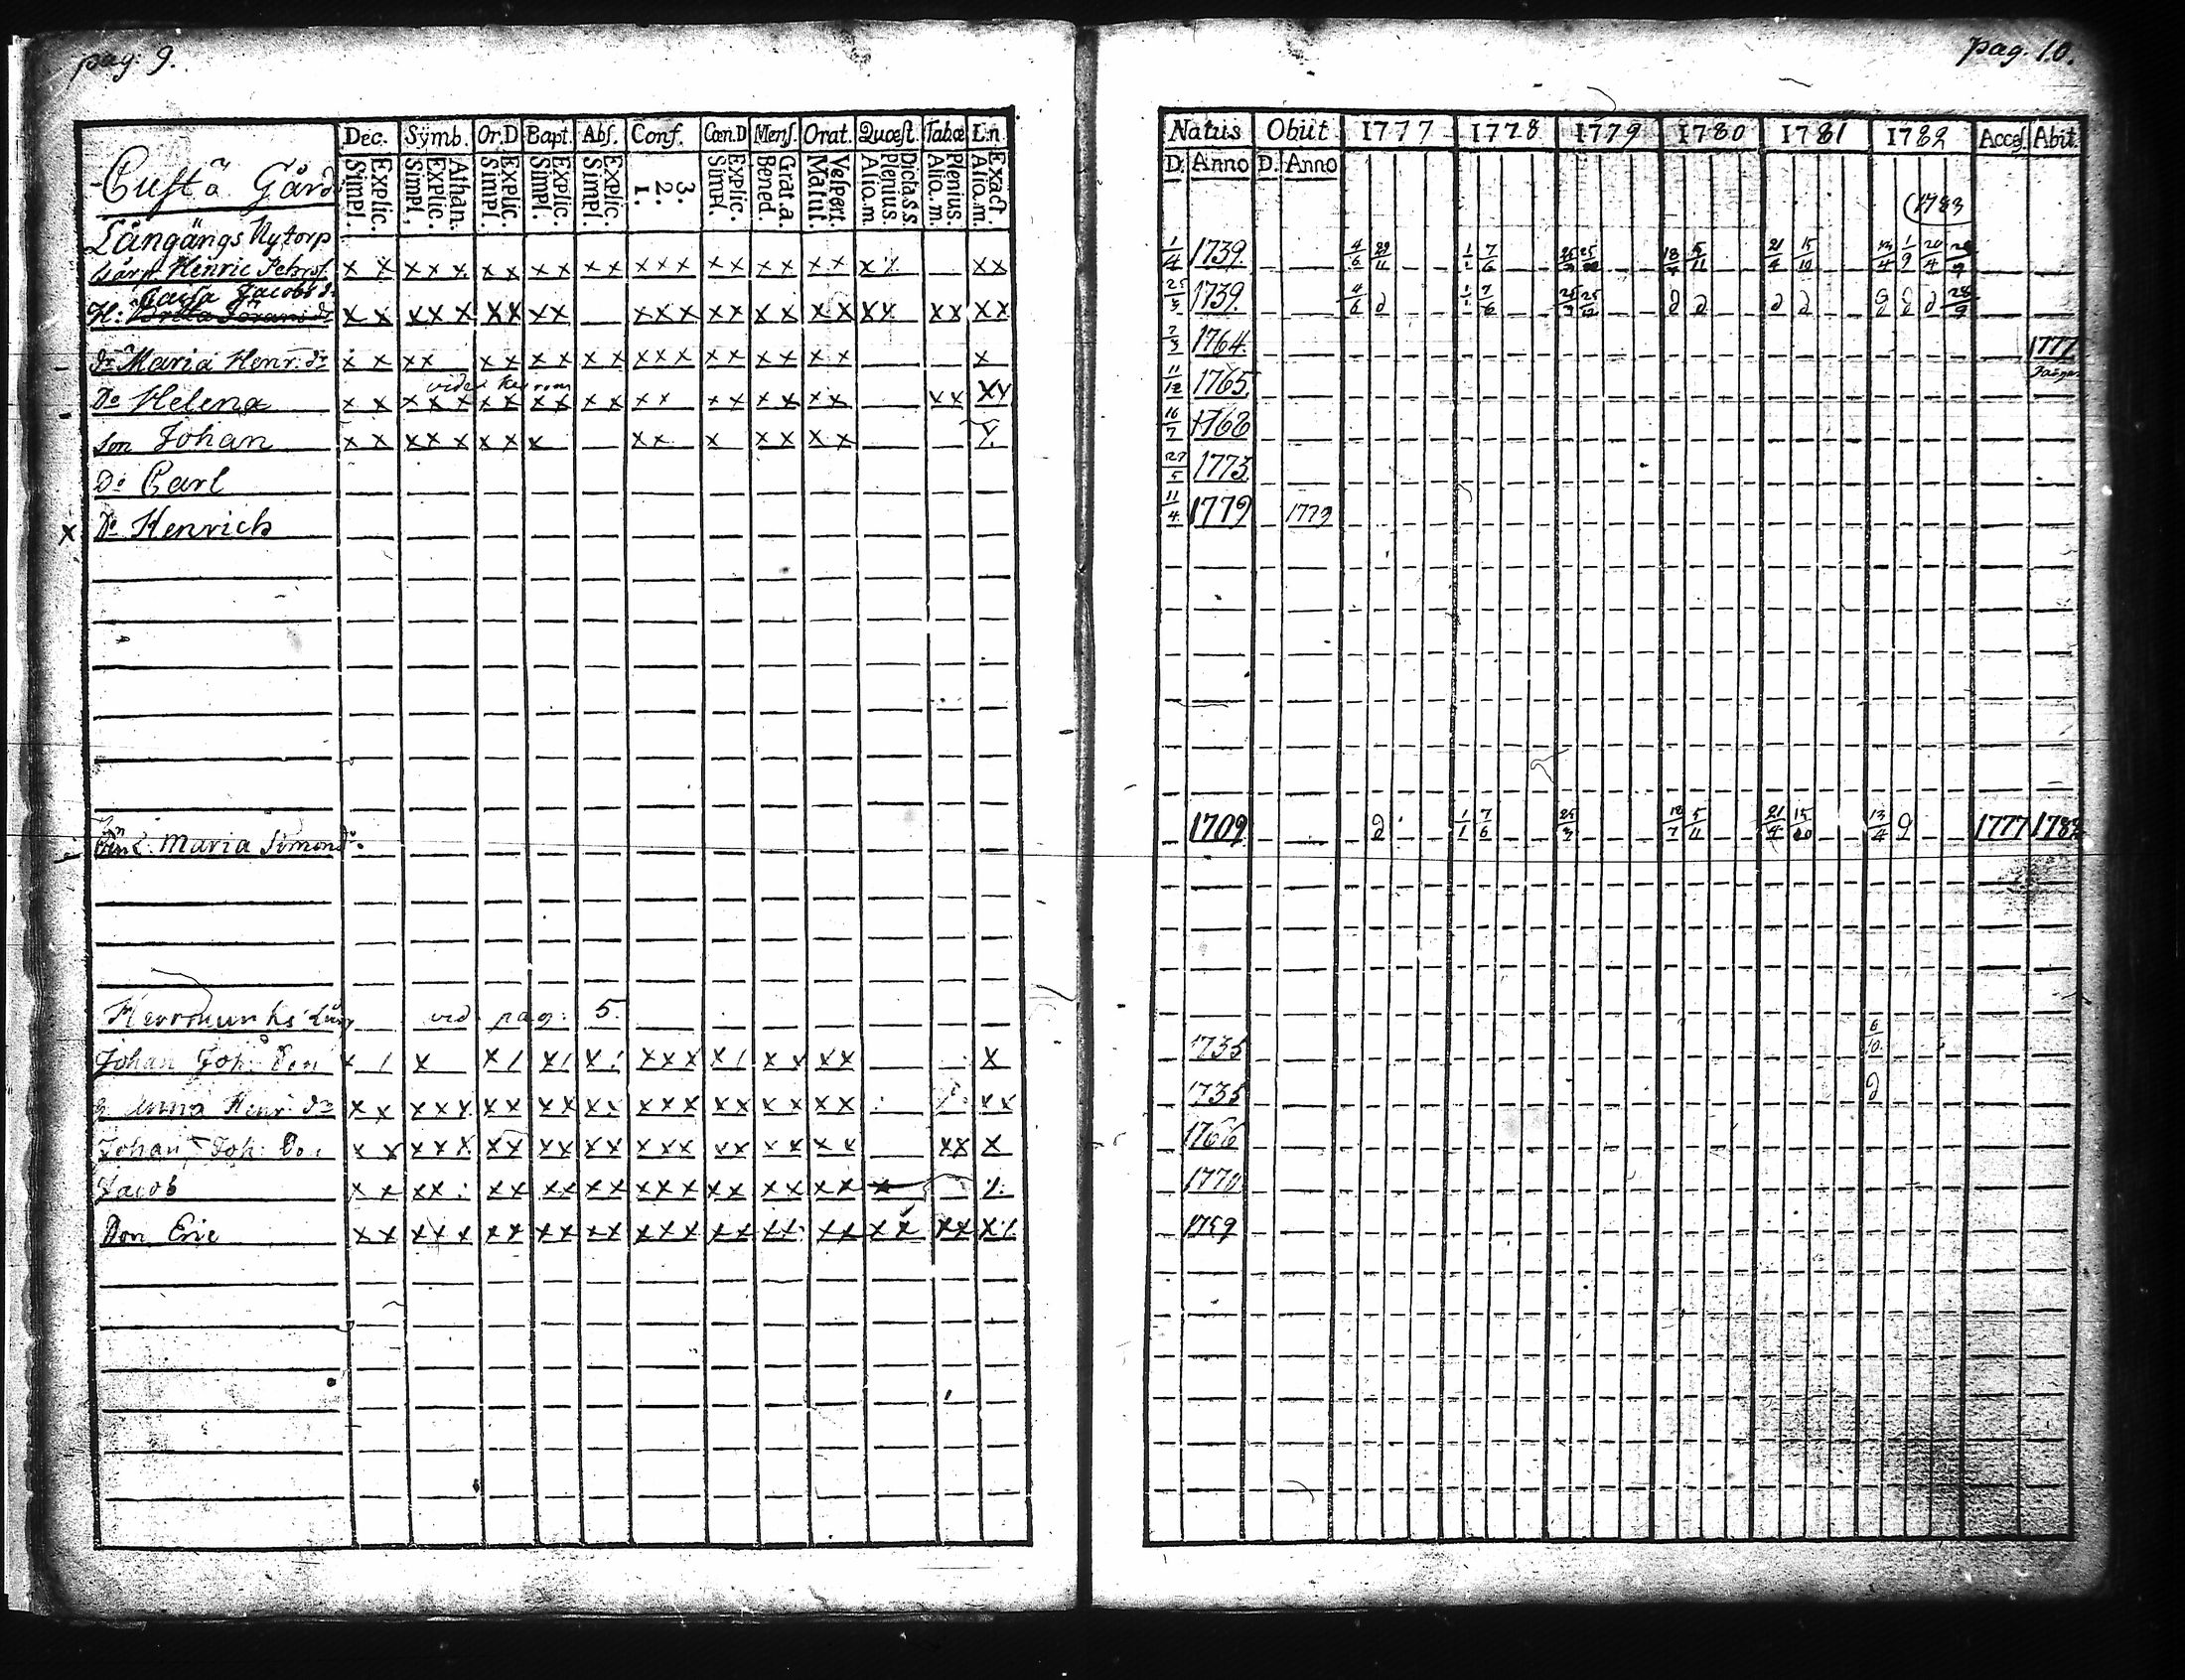 pag. 9.
Dec. Symb. Or.D Bapt. Abſ. Conf. Cœn.D Menſ. Orat. Quœſt. Tabœ L.n
Explic. Simpl. Athan. Explic. Simpl. Explic. Simpl. Explic. Simpl. Explic. Simpl. 3. 2. 1. Explic. Simpl. Grat.a. Bened. Veſpert. Matut. Dicta.s.s. Plenius. Alio.m. Plenius. Alio.m. Exact. Alio.m.
Custä Gård
Långängs Nytorp
Henric Pehrs. x x x x x x x x x x x x x x x x x x x x x x x
Caisa Jacobs d:
H: Brita x x x x x x x x x x x x x x x x x x x x x x x x
dr Maria Henr: dr x x x x x x x x x x x x x x x x x x x x
Do Helena x x x x x x x x x x x x x x x x x x x x x x x
son Johan x x x x x x x x x x x x x x x x
Do Carl
x Do Henrich
Maria Simons dr.
vid: pag: 5.
Johan Joh: Son x / x x / x / x x x x x / x x x x x
h. Anna Henr: dr x x x x x x x x x x x x x x x x x x x x x x
Johan Joh: So. x x x x x x x x x x x x x x x x x x x x x x x
Jacob x x x x x x x x x x x x x x x x x x x x x
Son Eric x x x x x x x x x x x x x x x x x x x x x x x x x x
pag. 10.
Natus Obiit 1777 1778 1779 1780 1781 1782 Acceſ. Abit.
D. Anno D. Anno
(1783
1/4 1739. 4/6 1/1 7/6 5/11 21/4 15/10 1/9 20/4
25/3 1739. 4/6 2 1/1 7/6 2 2 2 2 2 2 2 28/9
7/3 1764. 1777
11/12 1765.
16/7 1768
27/5 1773.
11/4 1779 1779
1709 2 1/1 7/6 25/3 5/11 21/4 15/10 13/4 1777 1782
1735 6/10
1735 2
1766
1770
1759